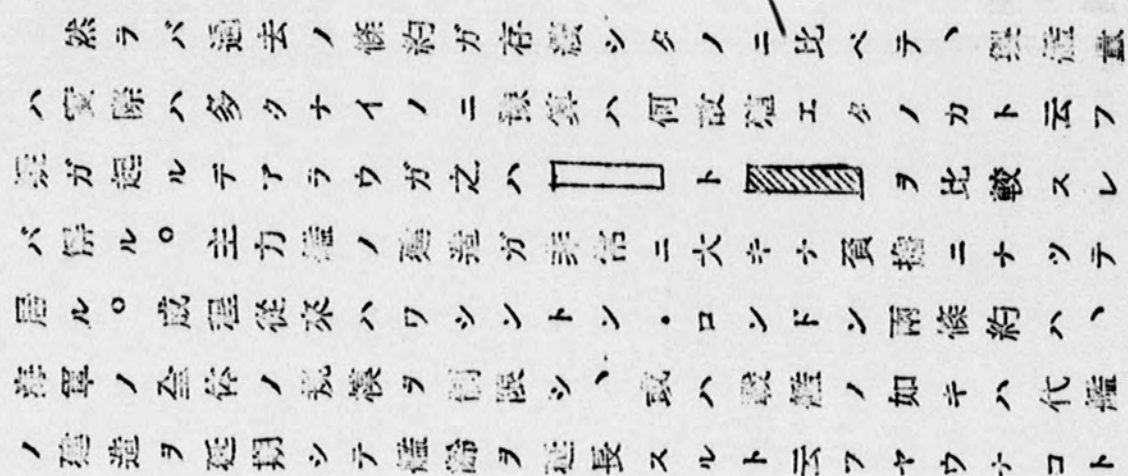 然ラバ過去ノ條約ガ存續シタノニ比ベテ、與造量
ハ實際ハ多クナイノニ豫算ハ何故殖エタノカト云フ
疑ガ起ルデアラウガ之ハ ト ヲ比較スレ
バ解ル。主力艦ノ建造ガ非常ニ大キナ負擔ニナツテ
居ル。成程從來ハワシントン・ロンドン兩條約ハ、
海軍ノ全体ノ規模ヲ制限シ、或ハ戰艦ノ如キハ代艦
ノ建造ヲ延期シテ艦齡ヲ延長スルト云フヤウナコト